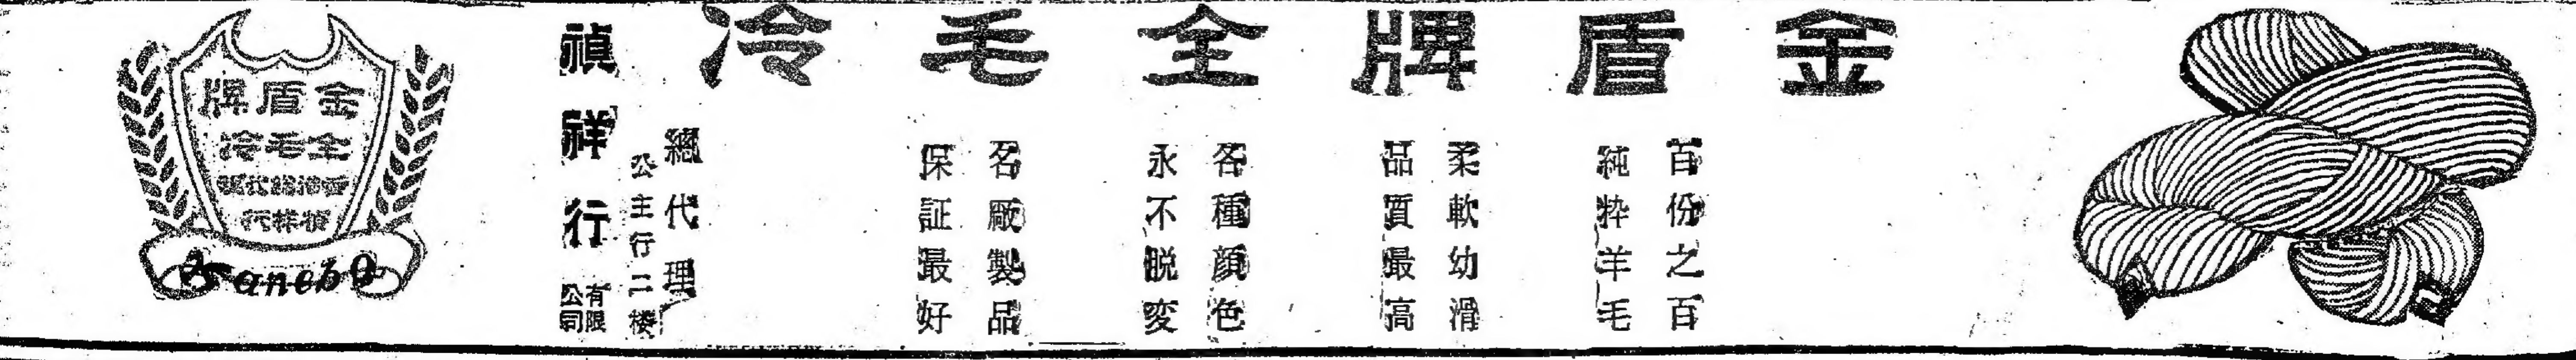 金盾牌全毛冷
百份之百
純粋羊毛
柔軟幼滑
品質最高
各種顏色
永不脱変
名厰製品
保証最好
總代理
公主行二楼
禎祥行
有限公司
金盾牌
全毛冷
香港總代理
禎祥行
Kanebo